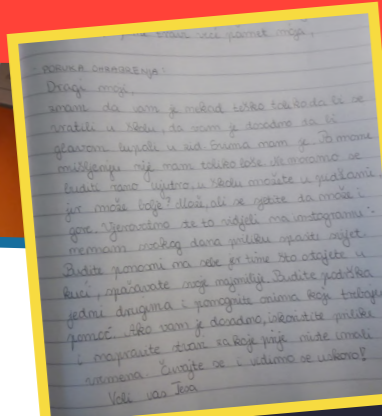 veća pamet moja,
PORUKA OHRABRENJA:
Dragi moji,
znam da vam je nekad teško toliko da bi se
vratili u školu, da vam je dosadno da bi
glavom lupali u zid. Svima nam je. Po mome
mišljenju nije nam toliko loše. Ne moramo se
buditi rano ujutro, u školu možete u pidžami,
jer može bolje? Može, ali se sjetite da može i
gore. Vjerovatno ste to vidjeli na instagramu:
nemam svakog dana priliku spasiti svijet.
Budite ponosni na sebe jer time što ostajete u
kući, spašavate svoje najmilije. Budite podrška
jedni drugima i pomognite onima koji trebaju
pomoć. Ako vam je dosadno, iskoristite priliku
i napravite stvari za koje prije niste imali
vremena. Čuvajte se i vidimo se uskoro!
Voli vas Tesa